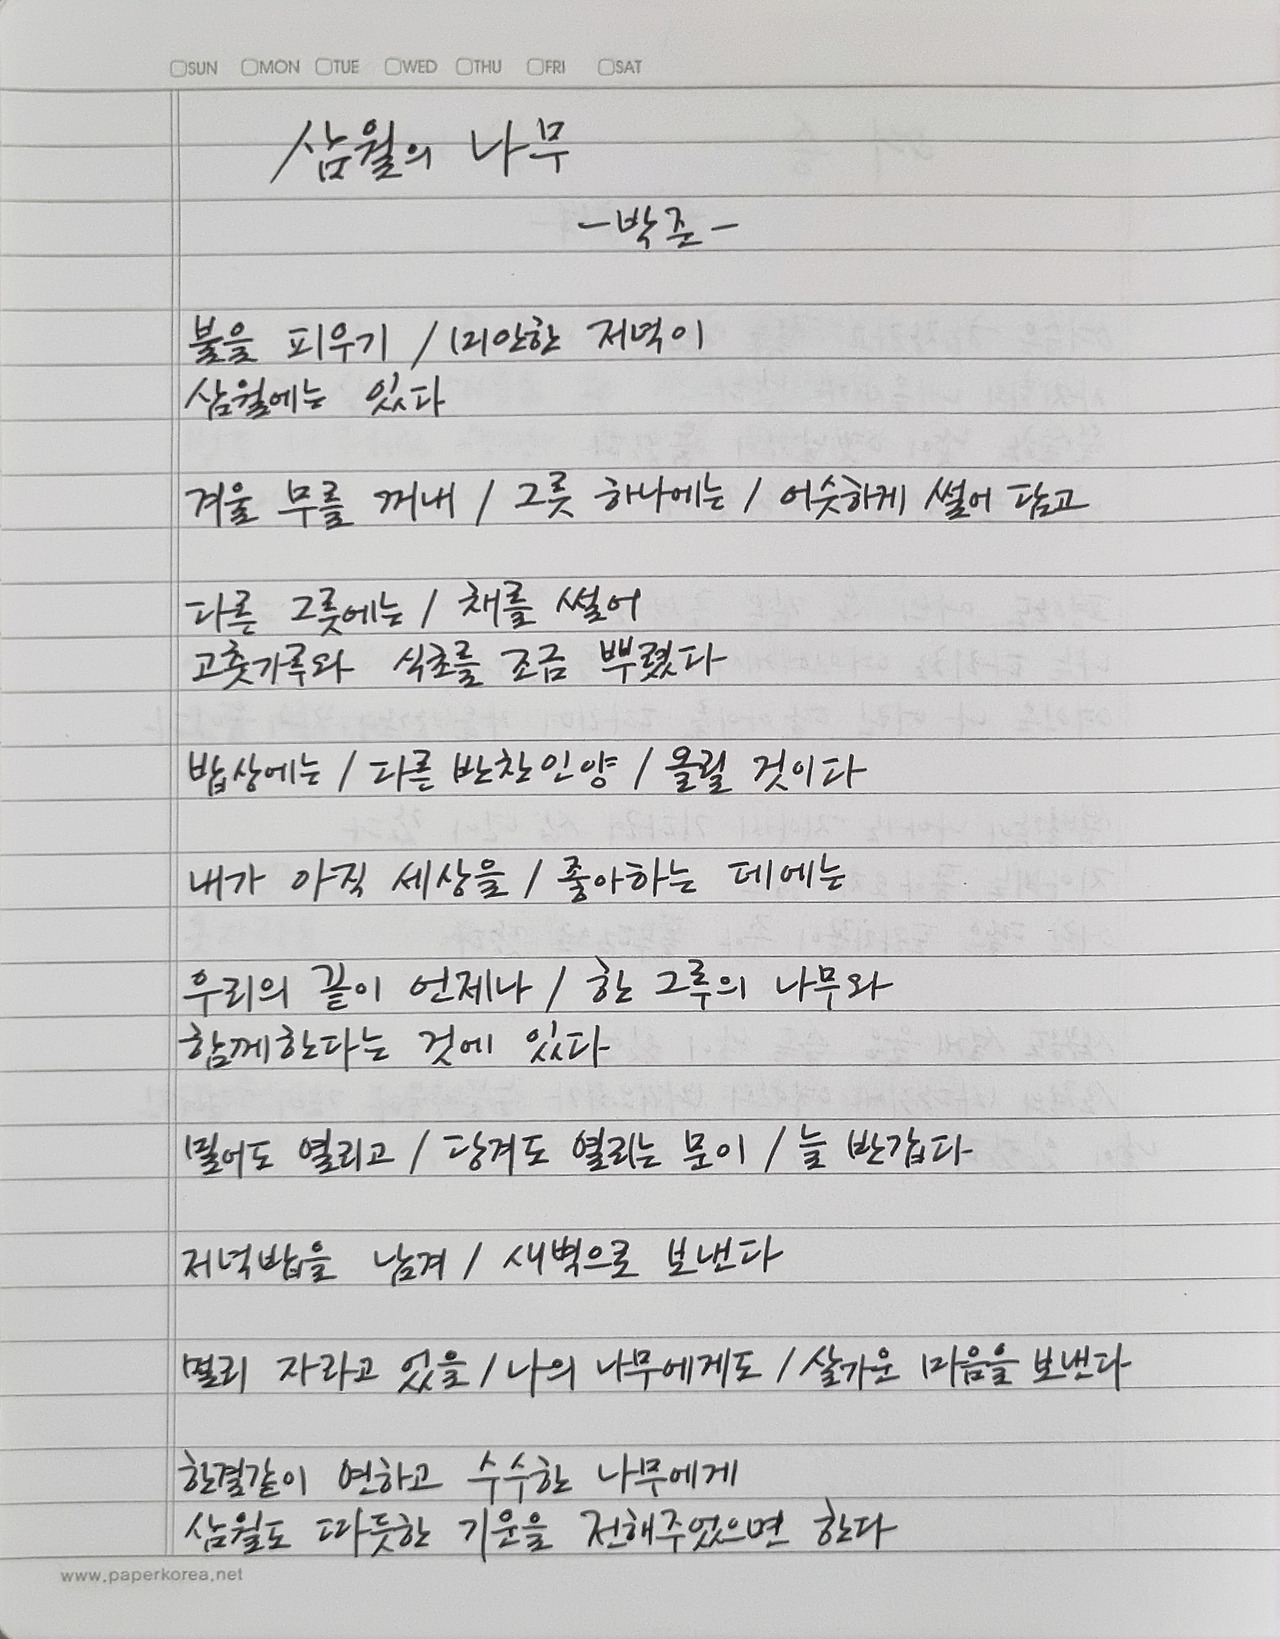 SUN MON TUE WED THU FRI SAT
삼월의 나무
-박준-
불을 피우기 / 미안한 저녁이
삼월에는 있다
겨울 무를 꺼내 / 그릇 하나에는 / 어슷하게 썰어 담고
다른 그릇에는 / 채를 썰어
고춧가루와 식초를 조금 뿌렸다
밥상에는 / 다른 반찬인 양 / 올릴 것이다
내가 아직 세상을 / 좋아하는 데에는
우리의 끝이 언제나 / 한 그루의 나무와
함께한다는 것에 있다
밀어도 열리고 / 당겨도 열리는 문이 / 늘 반갑다
저녁밥을 남겨 / 새벽으로 보낸다
멀리 자라고 있을 / 나의 나무에게도 / 살가운 마음을 보낸다
한결같이 연하고 수수한 나무에게
삼월도 따듯한 기운을 전해주었으면 한다
www.paperkorea.net